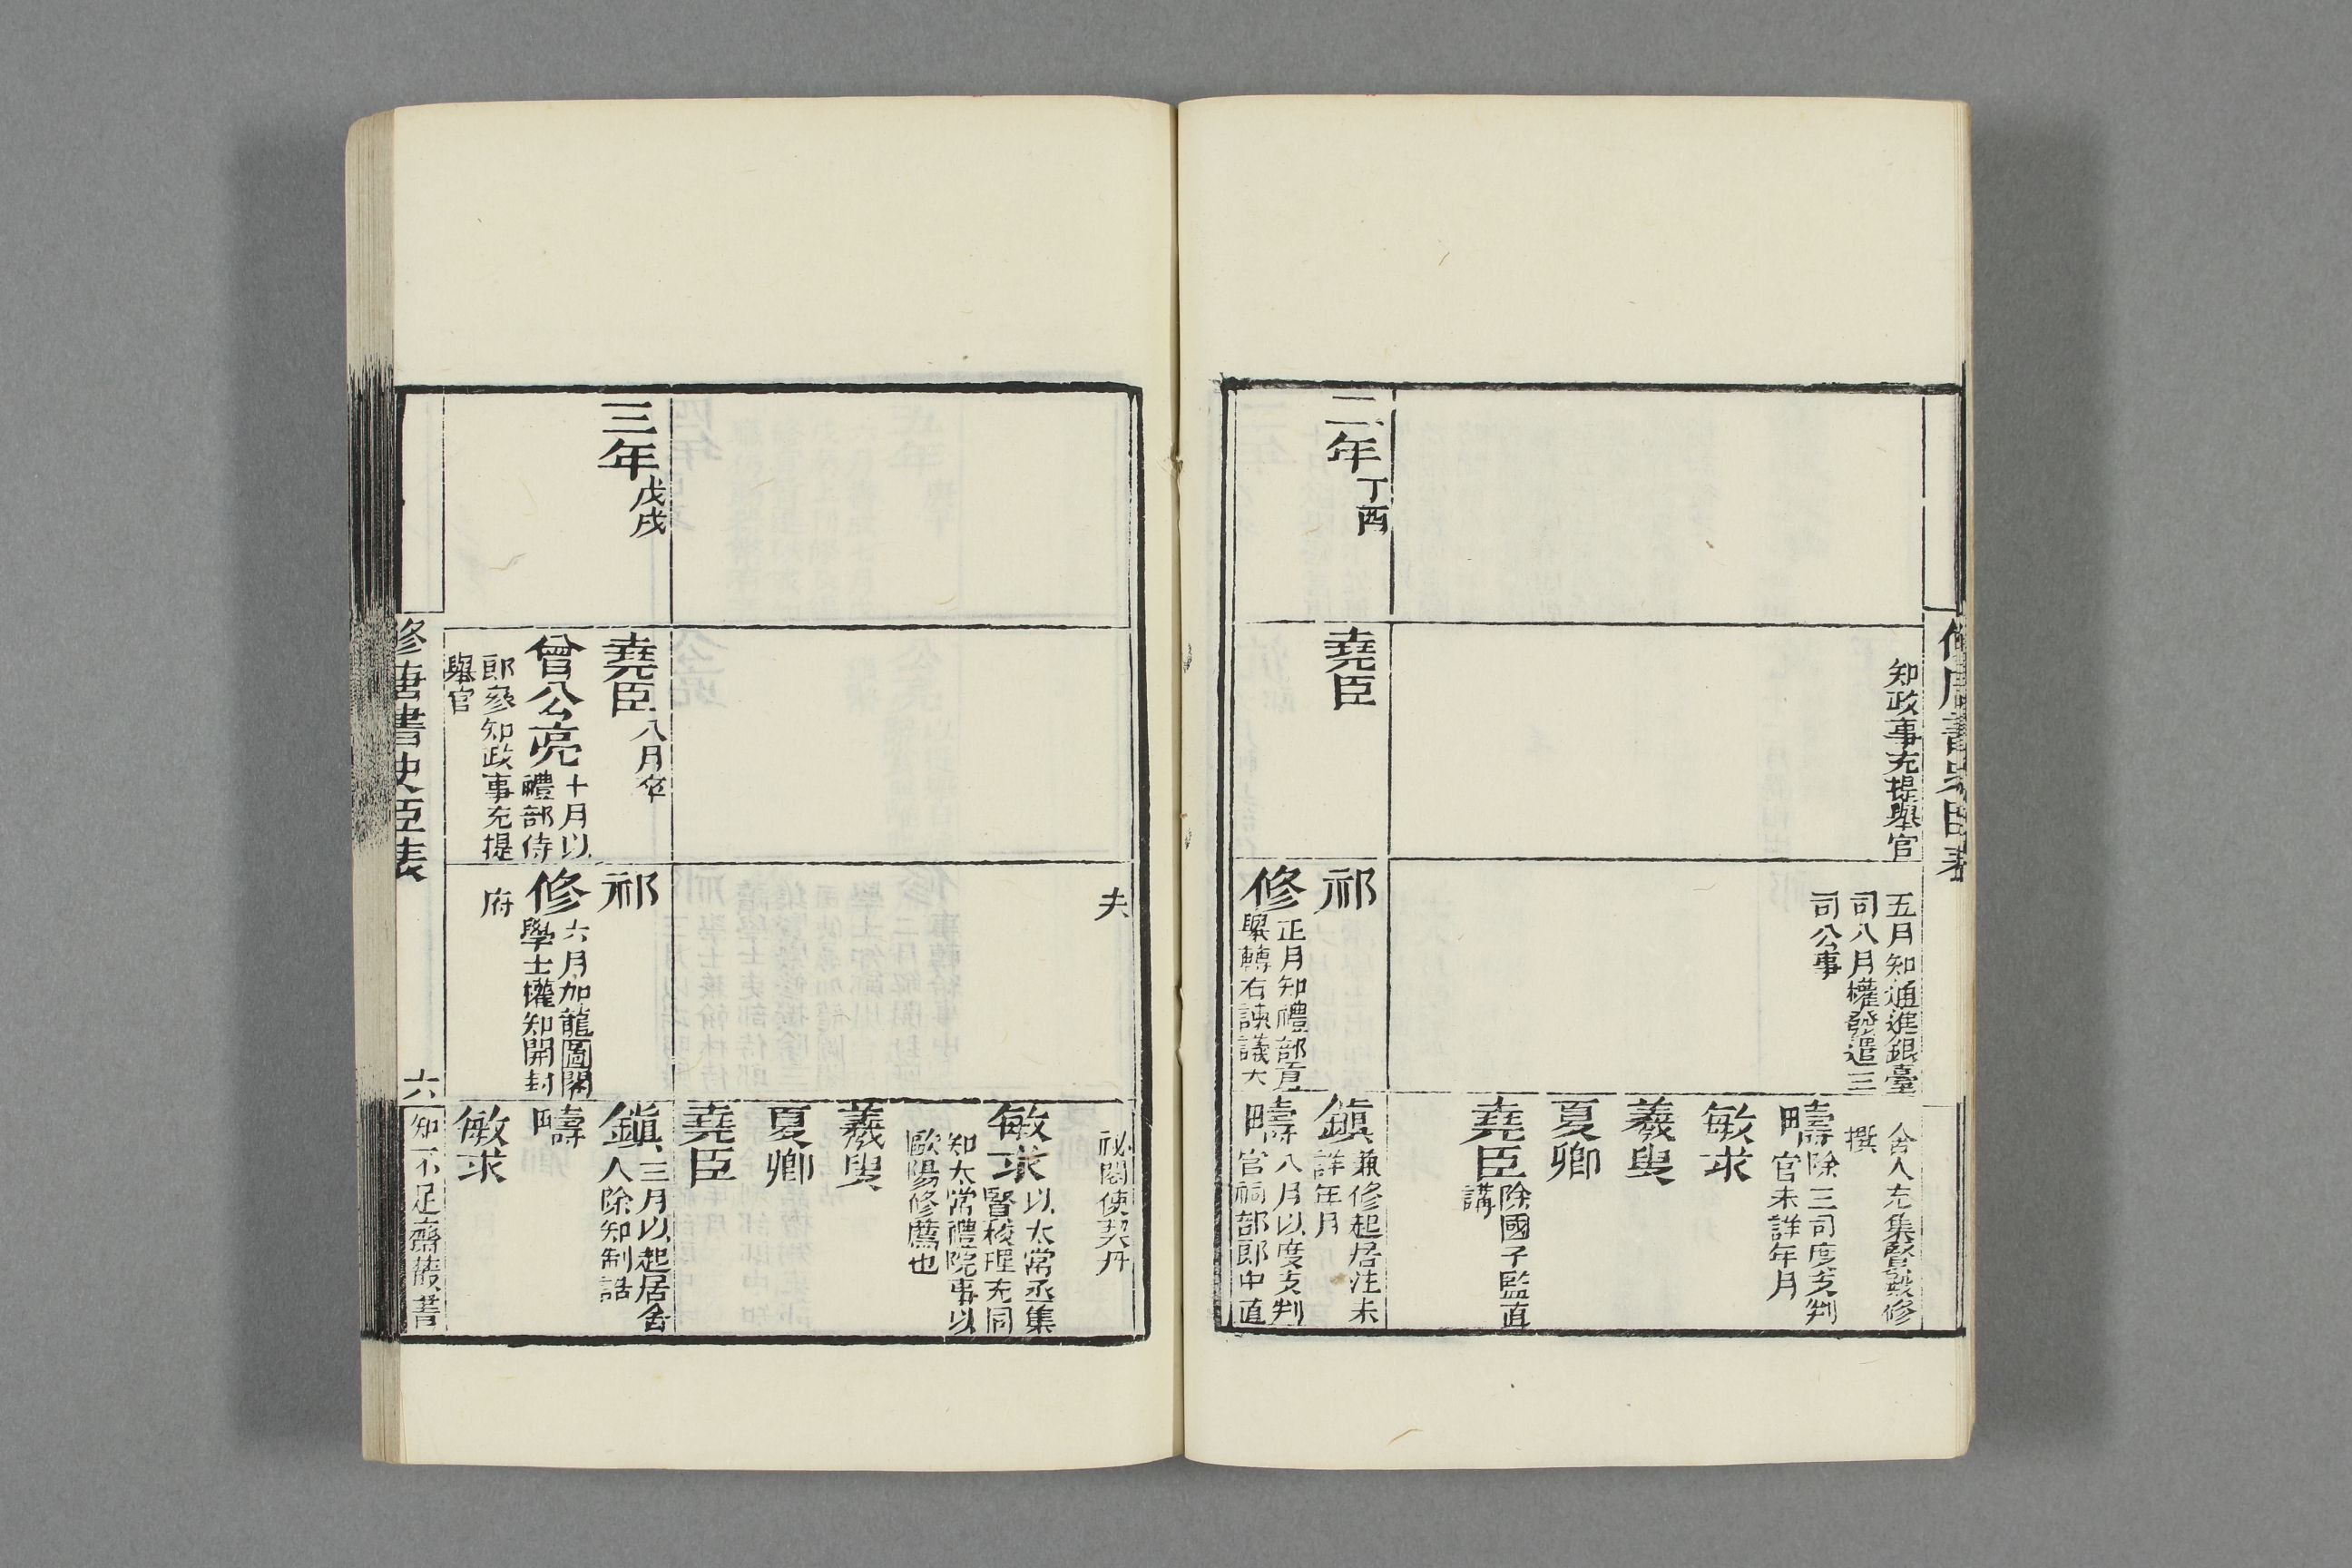 修唐書史臣表
知政事充提舉官
五月知通進銀臺
司八月權發遣三
司公事
舍人充集賢殿修
撰
疇除三司度支判
官未詳年月
敏求
羲叟
夏卿
堯臣除國子監直
講
二年丁酉
堯臣
祁
修正月知禮部貢
舉轉右諫議大
鎮兼修起居注未
詳年月
疇八月以度支判
官祠部郎中直
夫
祕閣使契丹
敏求以太常丞集
賢校理充同
知太常禮院事以
歐陽修薦也
羲叟
夏卿
堯臣
三年戊戌
堯臣八月卒
曾公亮十月以
禮部侍
郎參知政事充提
舉官
祁
修六月加龍圖閣
學士權知開封
府
鎮三月以起居舍
人除知制誥
疇
敏求
修唐書史臣表
六
知不足齋叢書